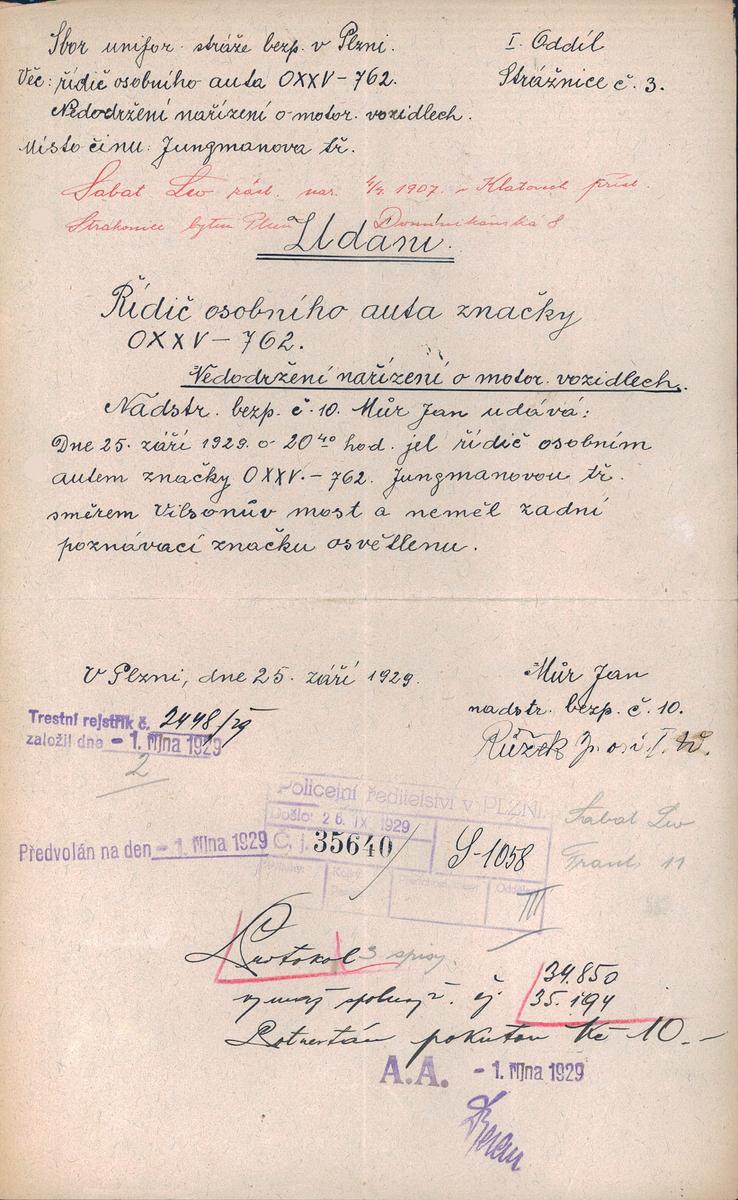 Sbor unifor. stráže bezp. v Plzni.
I. Oddíl
Věc: řídič osobního auta OXXV-762.
Strážnice č. 3.
Nedodržení nařízení o motor. vozidlech.
Místo činu: Jungmanova tř.
Sabat Leo nar. 1907 v Klatovech
Strakonice bytem Plzeň Dominikánská 8
Udání.
Řídič osobního auta značky
OXXV-762.
Nedodržení nařízení o motor. vozidlech.
Nadstr. bezp. č. 10. Můr Jan udává:
Dne 25. září 1929. o 20⁴⁰ hod. jel řídič osobním
autem značky OXXV.-762. Jungmanovou tř.
směrem Vilsonův most a neměl zadní
poznávací značku osvětlenu.
V Plzni, dne 25. září 1929.
Můr Jan
nadstr. bezp. č. 10.
Růžek
Trestní rejstřík č. 2448/29
založil dne - 1. října 1929
2
Policejní ředitelství v PLZNI.
Došlo: 26. IX 1929
Č. j. 35640/
S-1058
III
Předvolán na den - 1. října 1929
Sabat Leo
Frant. 11
Protokol 3 spisy.
34.850
čj. 35.194
Potrestán pokutou Kč 10.-
A.A. - 1. října 1929